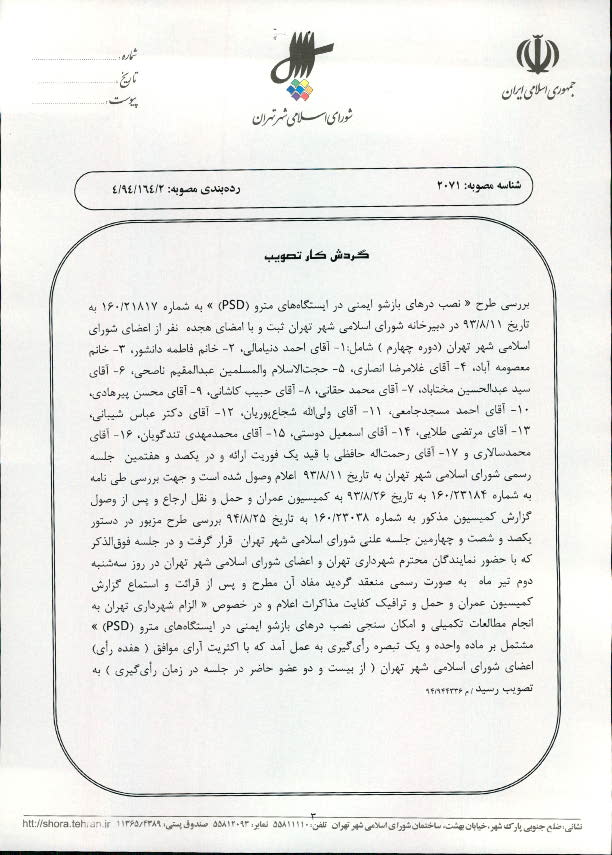 جمهوری اسلامی ایران
شورای اسلامی شهر تهران
شماره:
تاریخ:
پیوست:
شناسه مصوبه: ۲۰۷۱
رده‌بندی مصوبه: ۴/۹۴/۱۶۴/۲
گردش کار تصویب
بررسی طرح « نصب درهای بازشو ایمنی در ایستگاه‌های مترو (PSD) » به شماره ۱۶۰/۲۱۸۱۷ به
تاریخ ۹۳/۸/۱۱ در دبیرخانه شورای اسلامی شهر تهران ثبت و با امضای هجده نفر از اعضای شورای
اسلامی شهر تهران (دوره چهارم ) شامل:۱- آقای احمد دنیامالی، ۲- خانم فاطمه دانشور، ۳- خانم
معصومه آباد، ۴- آقای غلامرضا انصاری، ۵- حجت‌الاسلام والمسلمین عبدالمقیم ناصحی، ۶- آقای
سید عبدالحسین مختاباد، ۷- آقای محمد حقانی، ۸- آقای حبیب کاشانی، ۹- آقای محسن پیرهادی،
۱۰- آقای احمد مسجدجامعی، ۱۱- آقای ولی‌الله شجاع‌پوریان، ۱۲- آقای دکتر عباس شیبانی،
۱۳- آقای مرتضی طلایی، ۱۴- آقای اسمعیل دوستی، ۱۵- آقای محمدمهدی تندگویان، ۱۶- آقای
محمدسالاری و ۱۷- آقای رحمت‌اله حافظی با قید یک فوریت ارائه و در یکصد و هفتمین جلسه
رسمی شورای اسلامی شهر تهران به تاریخ ۹۳/۸/۱۱ اعلام وصول شده است و جهت بررسی طی نامه
به شماره ۱۶۰/۲۳۱۸۴ به تاریخ ۹۳/۸/۲۶ به کمیسیون عمران و حمل و نقل ارجاع و پس از وصول
گزارش کمیسیون مذکور به شماره ۱۶۰/۲۳۰۳۸ به تاریخ ۹۴/۸/۲۵ بررسی طرح مزبور در دستور
یکصد و شصت و چهارمین جلسه علنی شورای اسلامی شهر تهران قرار گرفت و در جلسه فوق‌الذکر
که با حضور نمایندگان محترم شهرداری تهران و اعضای شورای اسلامی شهر تهران در روز سه‌شنبه
دوم تیر ماه به صورت رسمی منعقد گردید مفاد آن مطرح و پس از قرائت و استماع گزارش
کمیسیون عمران و حمل و ترافیک کفایت مذاکرات اعلام و در خصوص « الزام شهرداری تهران به
انجام مطالعات تکمیلی و امکان سنجی نصب درهای بازشو ایمنی در ایستگاه‌های مترو (PSD) »
مشتمل بر ماده واحده و یک تبصره رأی‌گیری به عمل آمد که با اکثریت آرای موافق ( هفده رأی)
اعضای شورای اسلامی شهر تهران ( از بیست و دو عضو حاضر در جلسه در زمان رأی‌گیری ) به
تصویب رسید/ م ۹۴/۹۴۴۳۳۶
۳
نشانی: ضلع جنوبی پارک شهر، خیابان بهشت، ساختمان شورای اسلامی شهر تهران تلفن: ۵۵۸۱۱۱۱۰ نمابر: ۵۵۸۱۲۰۹۳ صندوق پستی: ۱۱۳۶۵/۴۳۸۹ htt://shora.tehran.ir